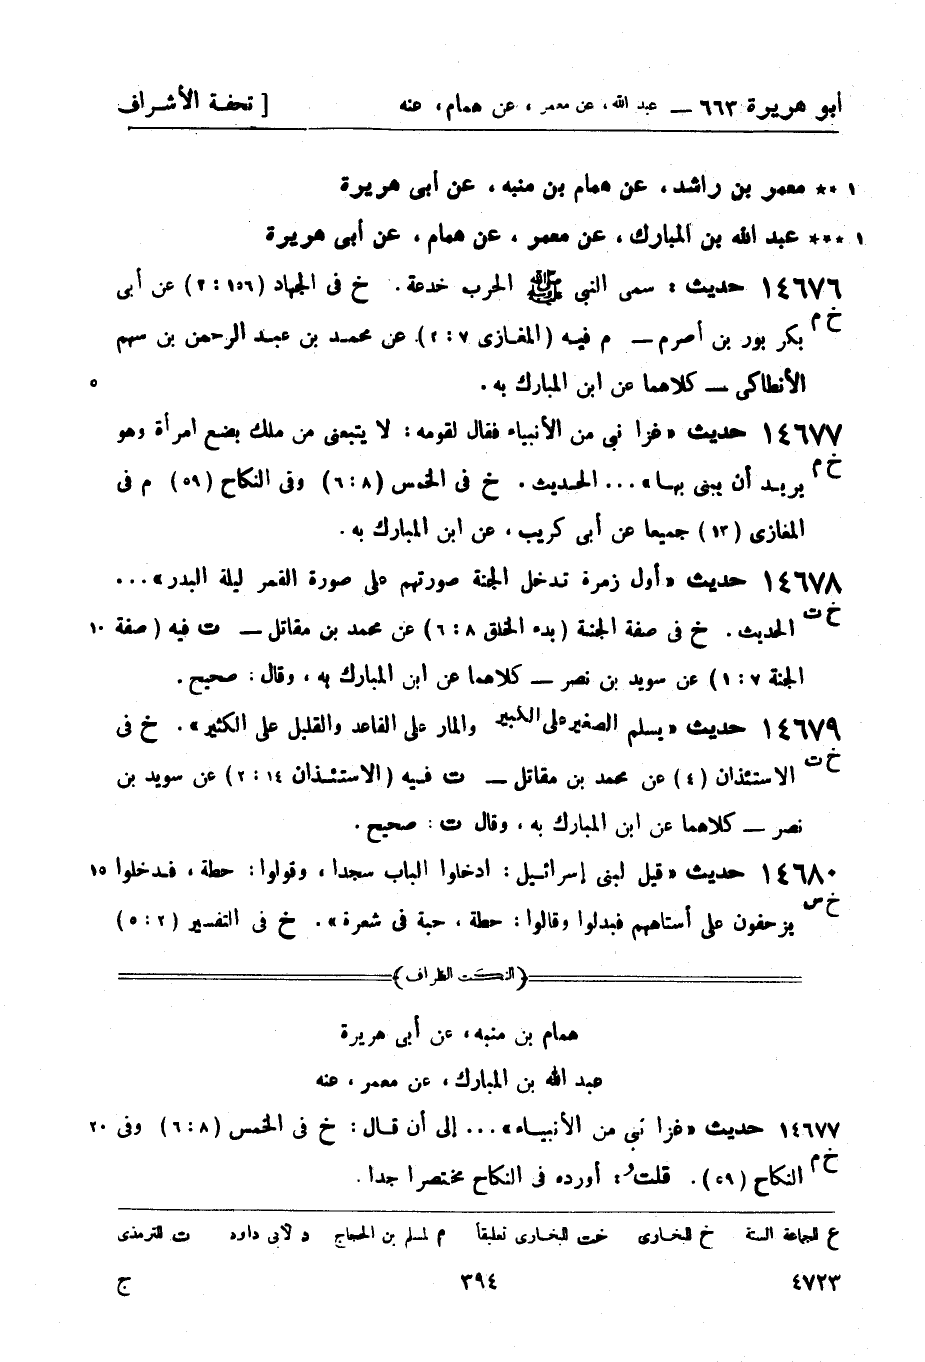 أبو هريرة ٦٦٣ — عبد الله، عن معمر، عن همام، عنه [ تحفة الأشراف
١ ** معمر بن راشد، عن همام بن منبه، عن أبى هريرة
١ *** عبد الله بن المبارك، عن معمر، عن همام، عن أبى هريرة
١٤٦٧٦ حديث: سمى النبي ﷺ الحرب خدعة. خ فى الجهاد (١٥٦: ٢) عن أبى
خ م بكر بور بن أصرم — م فيه (المغازى ٧: ٢). عن محمد بن عبد الرحمن بن سهم
الأنطاكى — كلاهما عن ابن المبارك به. ٥
١٤٦٧٧ حديث «غزا نبي من الأنبياء فقال لقومه: لا يتبعنى من ملك بضع امرأة وهو
خ م يريد أن يبنى بها» ... الحديث. خ فى الخمس (٨: ٦) وفى النكاح (٥٩) م فى
المغازى (١٣) جميعا عن أبى كريب، عن ابن المبارك به.
١٤٦٧٨ حديث «أول زمرة تدخل الجنة صورتهم على صورة القمر ليلة البدر» ...
خ ت الحديث. خ فى صفة الجنة (بدء الخلق ٨: ٦) عن محمد بن مقاتل — ت فيه (صفة ١٠
الجنة ٧: ١) عن سويد بن نصر — كلاهما عن ابن المبارك به، وقال: صحيح.
١٤٦٧٩ حديث «يسلم الصغير على الكبير والمار على القاعد والقليل على الكثير». خ فى
خ ت الاستئذان (٤) عن محمد بن مقاتل — ت فيه (الاستئذان ١٤: ٢) عن سويد بن
نصر — كلاهما عن ابن المبارك به، وقال ت: صحيح.
١٤٦٨٠ حديث «قيل لبنى إسرائيل: ادخلوا الباب سجدا، وقولوا: حطة، فدخلوا ١٥
خ س يزحفون على أستاههم فبدلوا وقالوا: حطة، حبة فى شعرة». خ فى التفسير (٢: ٥)
(النكت الظراف)
همام بن منبه، عن أبى هريرة
عبد الله بن المبارك، عن معمر، عنه
١٤٦٧٧ حديث «غزا نبي من الأنبياء» ... إلى أن قال: خ فى الخمس (٨: ٦) وفى ٢٠
خ م النكاح (٥٩). قلت: أورده فى النكاح مختصرا جدا.
ع للجماعة الستة خ للبخارى خت للبخارى تعليقاً م لمسلم بن الحجاج د لأبى داود ت للترمذى
٤٧٢٣ ٣٩٤ ج